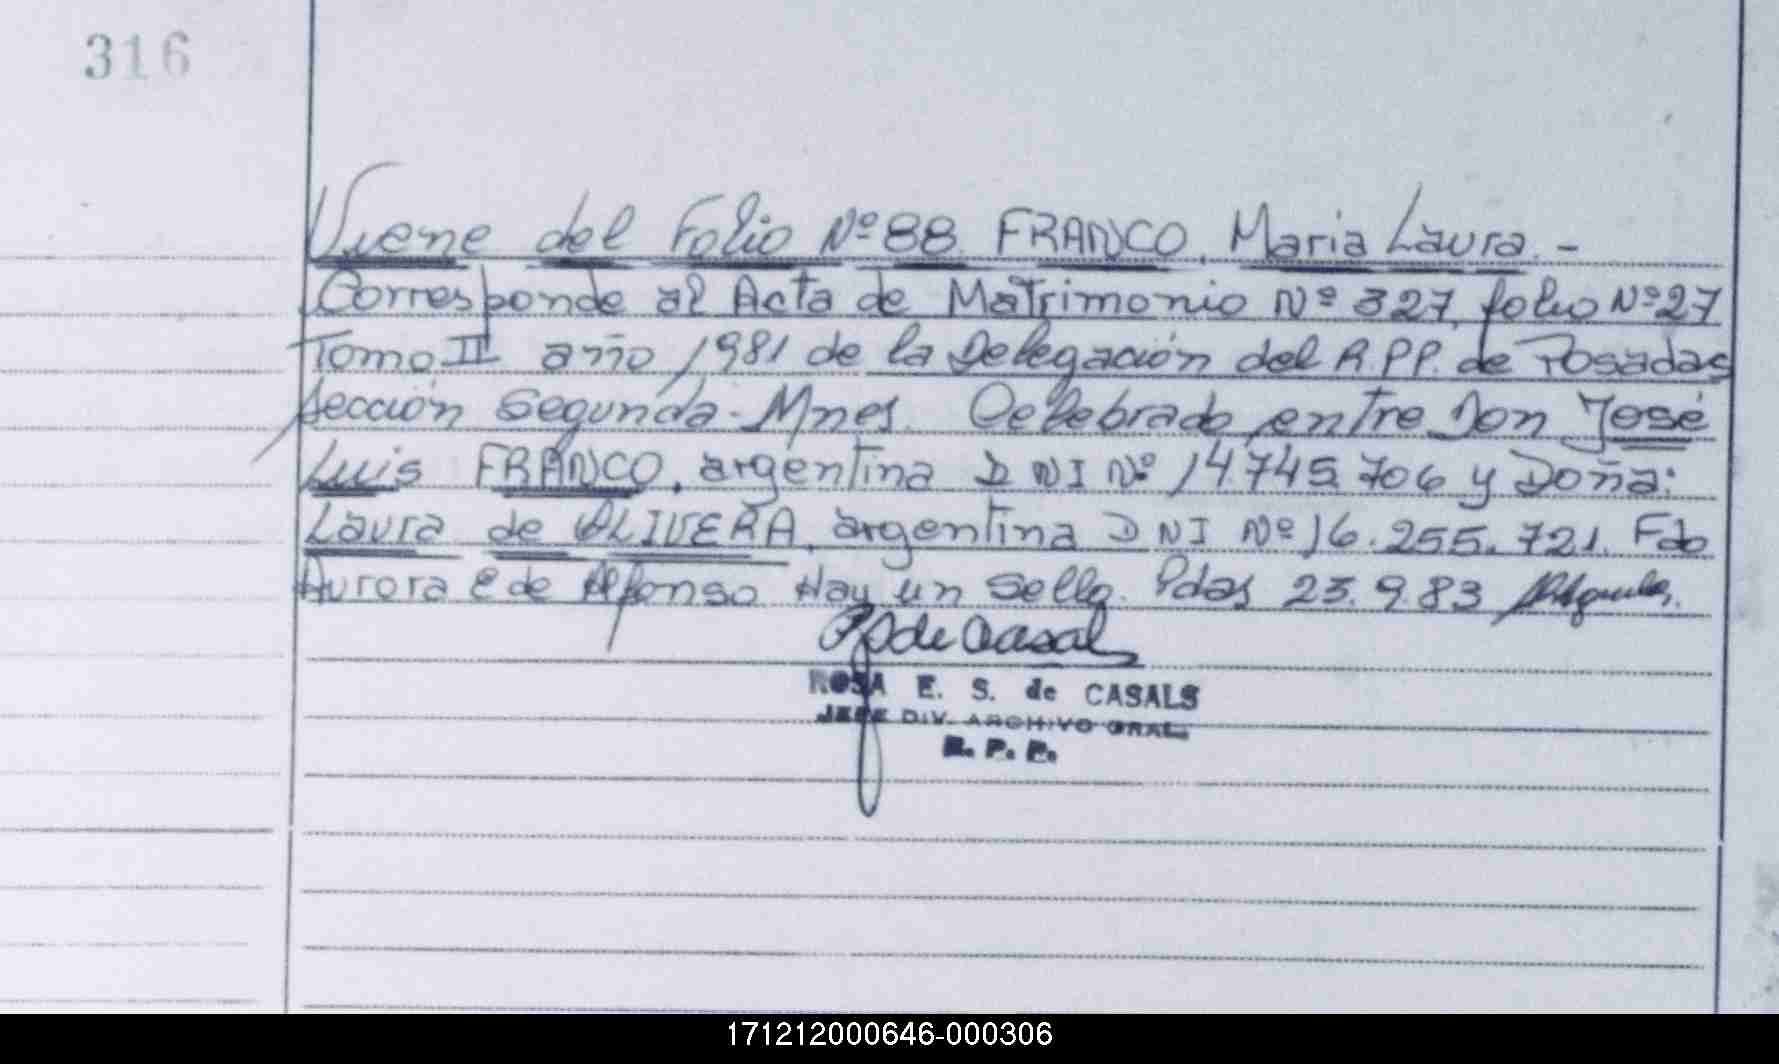 316
Viene del Folio Nº 88 FRANCO, Maria Laura.-
Corresponde al Acta de Matrimonio Nº 327, folio Nº 27
Tomo II año 1981 de la Delegación del R.P.P. de Posadas
Sección Segunda - Mnes. Celebrado entre Don José
Luis FRANCO, argentina D N I Nº 14.745.706 y Doña:
Laura de OLIVERA, argentina D N I Nº 16.255.721. Fdo
Aurora E de Alfonso Hay un sello. Pdas 23.9.83
de Casals
ROSA E. S. de CASALS
JEFE DIV. ARCHIVO GRAL.
R. P. P.
171212000646-000306